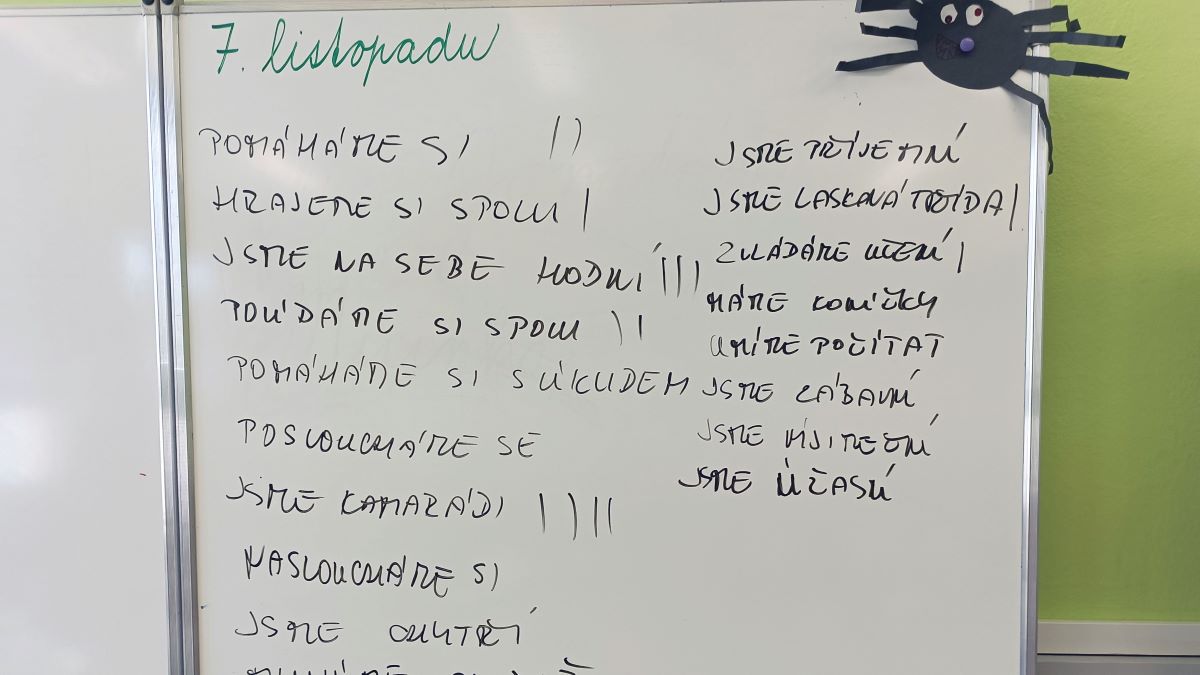 7. listopadu
POMÁHÁME SI ||
HRAJEME SI SPOLU |
JSME NA SEBE HODNÍ |||
POVÍDÁME SI SPOLU ||
POMÁHÁME SI S ÚKLIDEM
POSLOUCHÁME SE
JSME KAMARÁDI ||||
NASLOUCHÁME SI
JSME CHYTŘÍ
JSME PŘÍJEMNÍ
JSME LASKAVÁ TŘÍDA |
ZVLÁDÁME UČENÍ |
MÁME KONÍČKY
UMÍME POČÍTAT
JSME ZÁBAVNÍ
JSME VÝJIMEČNÍ
JSME ÚŽASNÍ